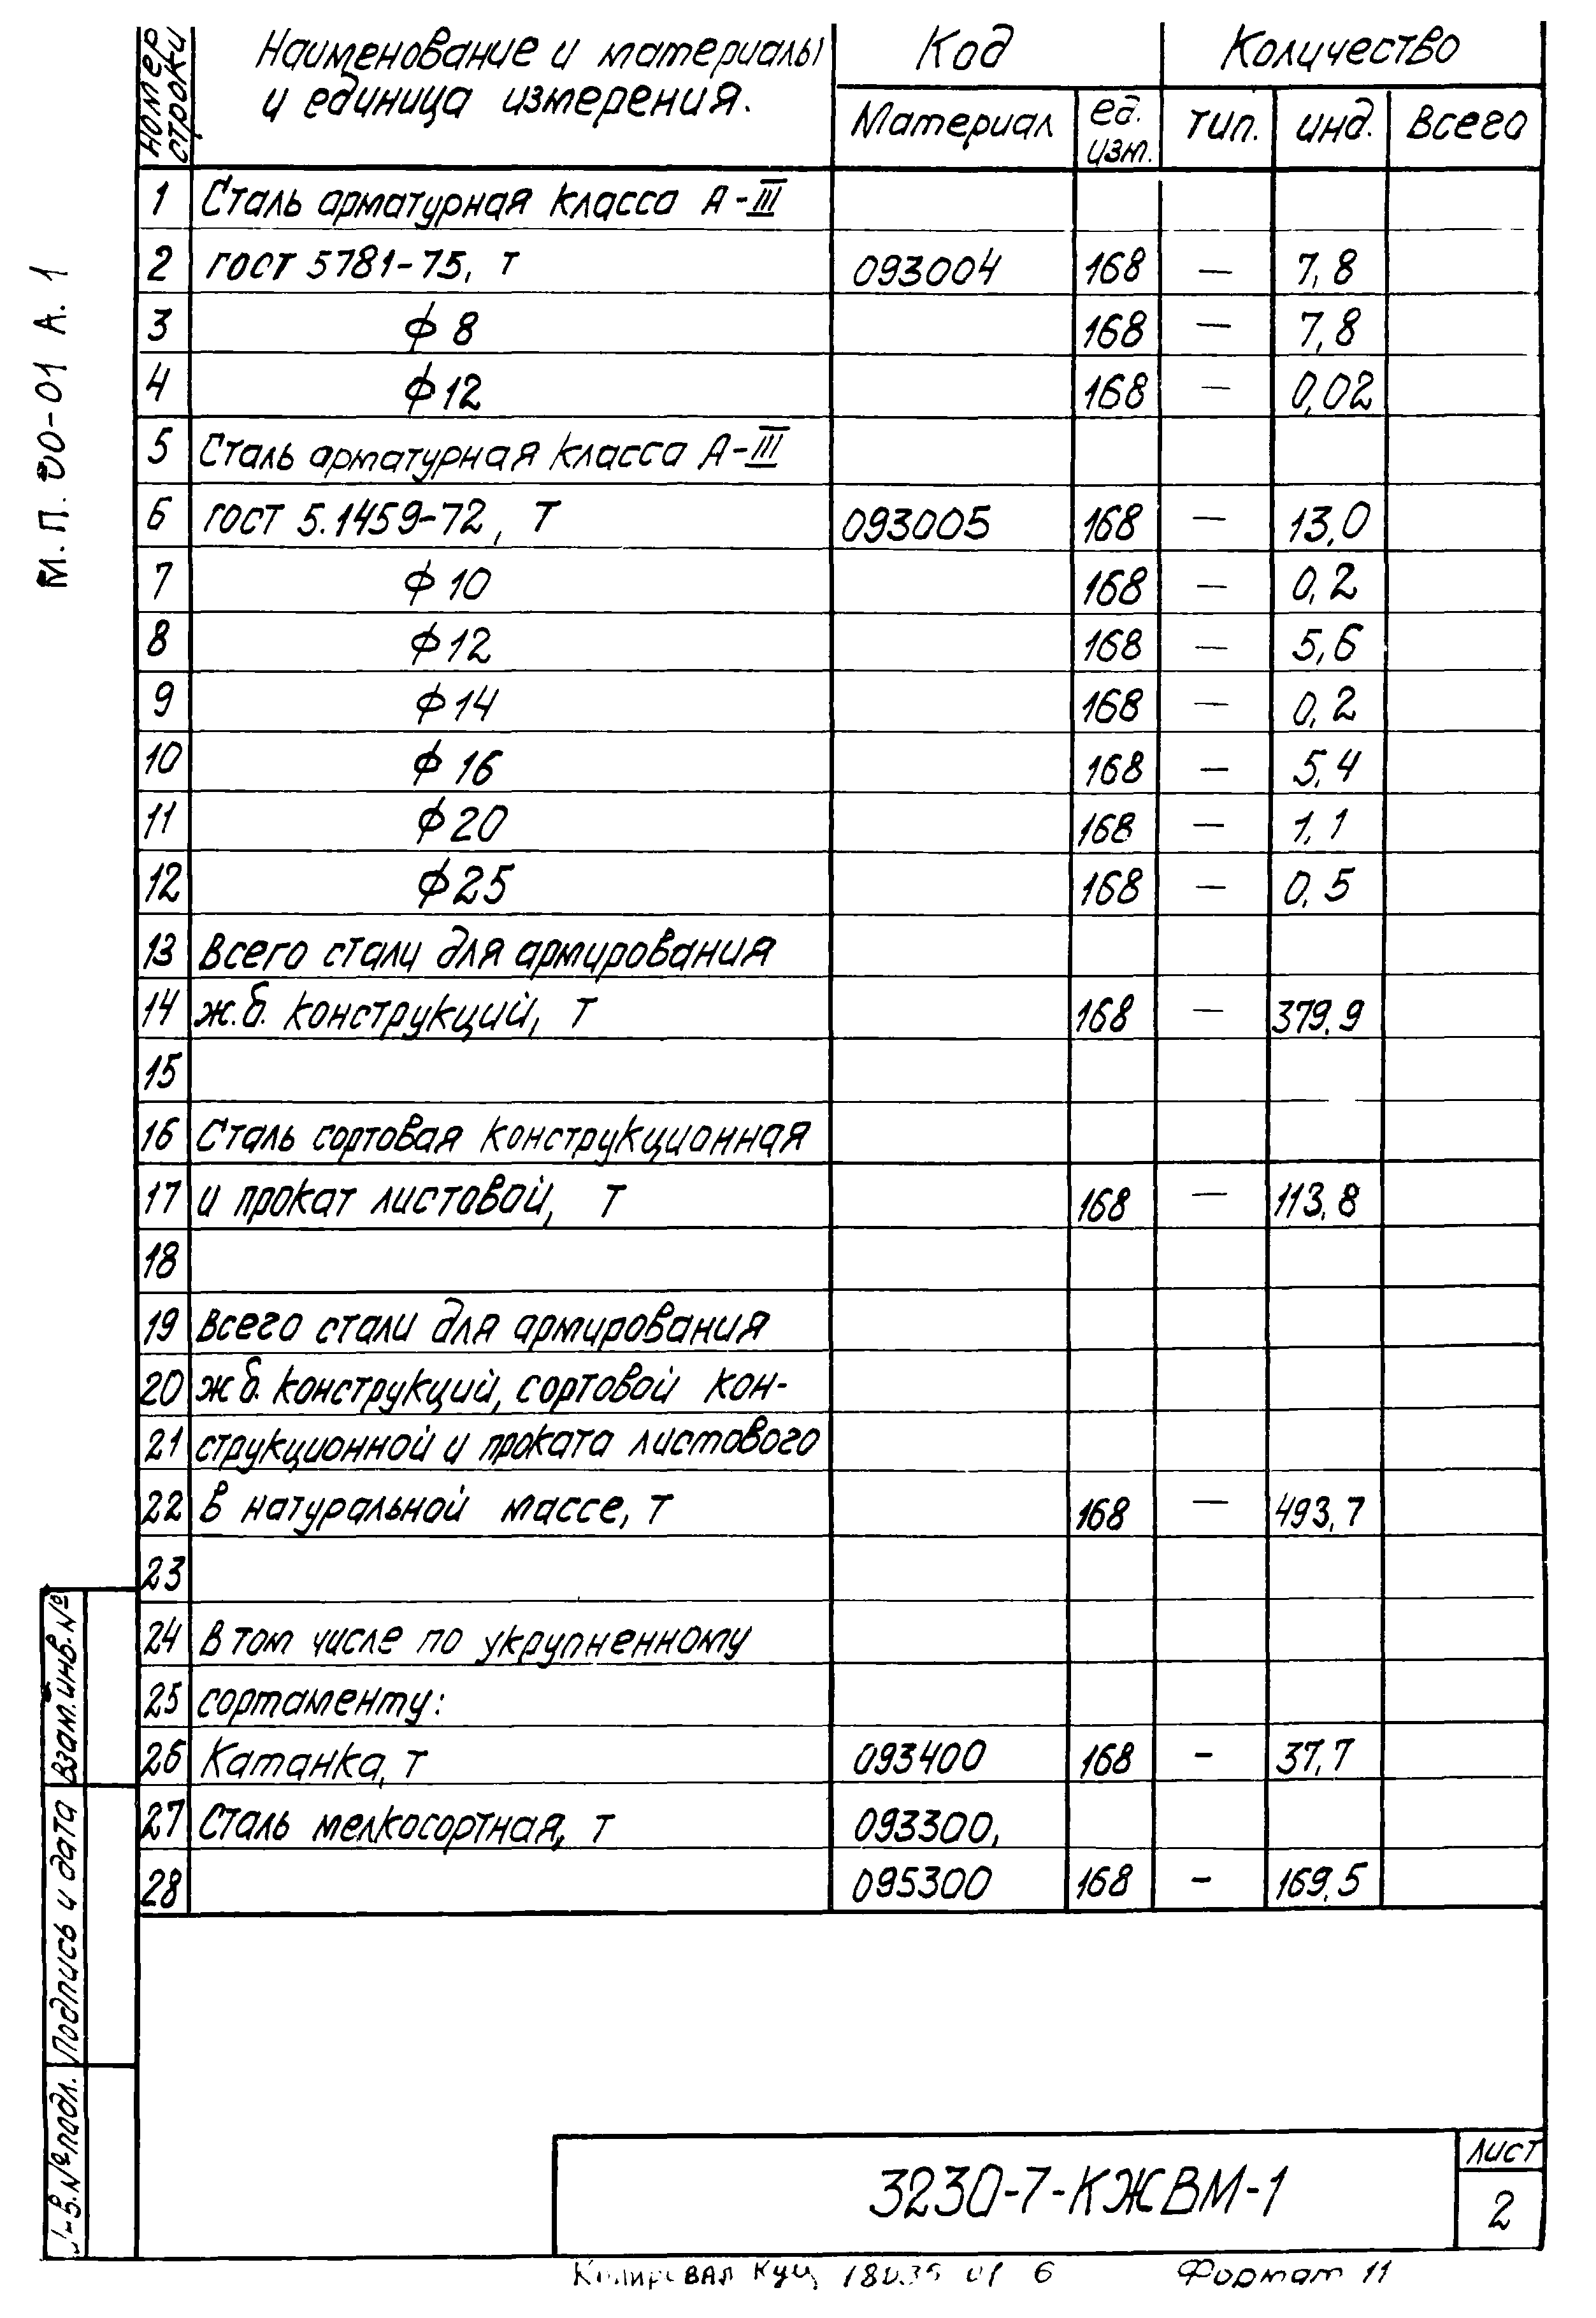 М.П. 80-01 А. 1
Номер строки | Наименование и материалы и единица измерения. | Код | Количество
Материал | ед. изм. | тип. | инд. | Всего
1 Сталь арматурная класса А-III
2 ГОСТ 5781-75, т 093004 168 — 7,8
3 ф 8 168 — 7,8
4 ф 12 168 — 0,02
5 Сталь арматурная класса А-III
6 ГОСТ 5.1459-72, т 093005 168 — 13,0
7 ф 10 168 — 0,2
8 ф 12 168 — 5,6
9 ф 14 168 — 0,2
10 ф 16 168 — 5,4
11 ф 20 168 — 1,1
12 ф 25 168 — 0,5
13 Всего стали для армирования
14 ж.б. конструкций, т 168 — 379,9
15
16 Сталь сортовая конструкционная
17 и прокат листовой, т 168 — 113,8
18
19 Всего стали для армирования
20 ж б. конструкций, сортовой кон-
21 струкционной и проката листового
22 в натуральной массе, т 168 — 493,7
23
24 В том числе по укрупненному
25 сортаменту:
26 Катанка, т 093400 168 - 37,7
27 Сталь мелкосортная, т 093300,
28 095300 168 - 169,5
Взам. инв. №
Подпись и дата
№ подл.
3230-7-КЖВМ-1
Лист
2
Копировал Куц 18035 01 6 Формат 11